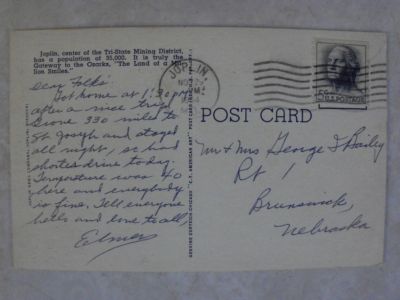 Joplin, center of the Tri-State Mining District,
has a population of 35,000. It is truly the
Gateway to the Ozarks, "The Land of a Mil-
lion Smiles."
JOPLIN,
NOV
PM
POST CARD
U.S. POSTAGE
Dear Folks
Got home at 1:30 pm
after a nice trip
Drove 330 miles to
St Joseph and stayed
all night, so had
shorter drive today.
Temperature was 40
here and everybody
is fine. Tell everyone
hello and love to all,
Elmer
Mr & Mrs George I Bailey
Rt 1
Brunswick,
Nebraska
GENUINE CURTEICH-CHICAGO "C.T. AMERICAN ART" POST CARD